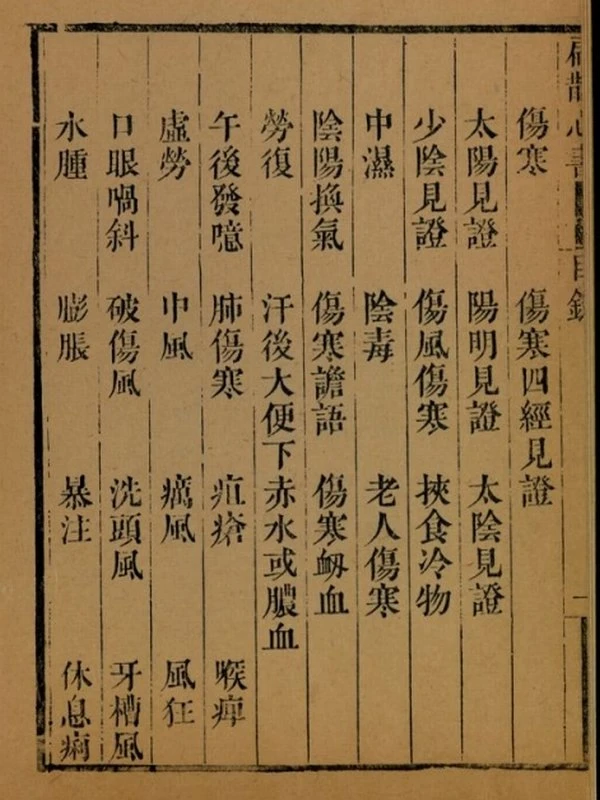 扁鵲心書 目錄 一
傷寒 傷寒四經見證
太陽見證 陽明見證 太陰見證
少陰見證 傷風傷寒 挾食冷物
中濕 陰毒 老人傷寒
陰陽換氣 傷寒譫語 傷寒衂血
勞復 汗後大便下赤水或膿血
午後發噫 肺傷寒 疽瘡 喉痺
虛勞 中風 癘風 風狂
口眼喎斜 破傷風 洗頭風 牙槽風
水腫 膨脹 暴注 休息痢